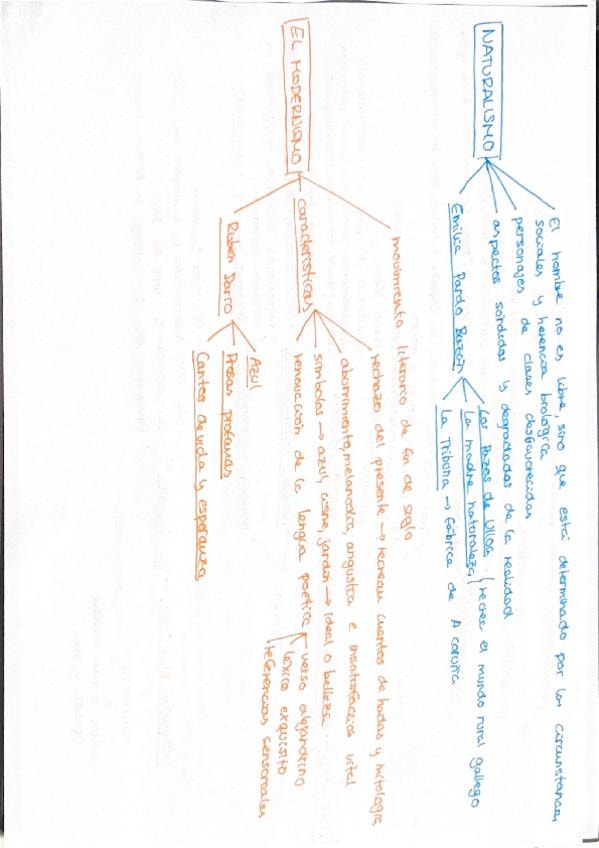 NATURALISMO
El hombre no es libre, sino que está determinado por las circunstancias
sociales y herencia biológica
personajes de clases desfavorecidas
aspectos sórdidos y degradados de la realidad
Emilia Pardo Bazán
Los Pazos de Ulloa
La madre naturaleza
recrea el mundo rural gallego
La Tribuna → fábrica de A coruña
EL MODERNISMO
movimiento literario de fin de siglo
características
rechazo del presente → recrean cuentos de hadas y mitología
aburrimiento, melancolía, angustia e insatisfacción vital
símbolos → azul, cisne, jardín → ideal o belleza
renovación de la lengua poética
verso alejandrino
léxico exquisito
referencias sensoriales
Rubén Darío
Azul
Prosas profanas
Cantos de vida y esperanza